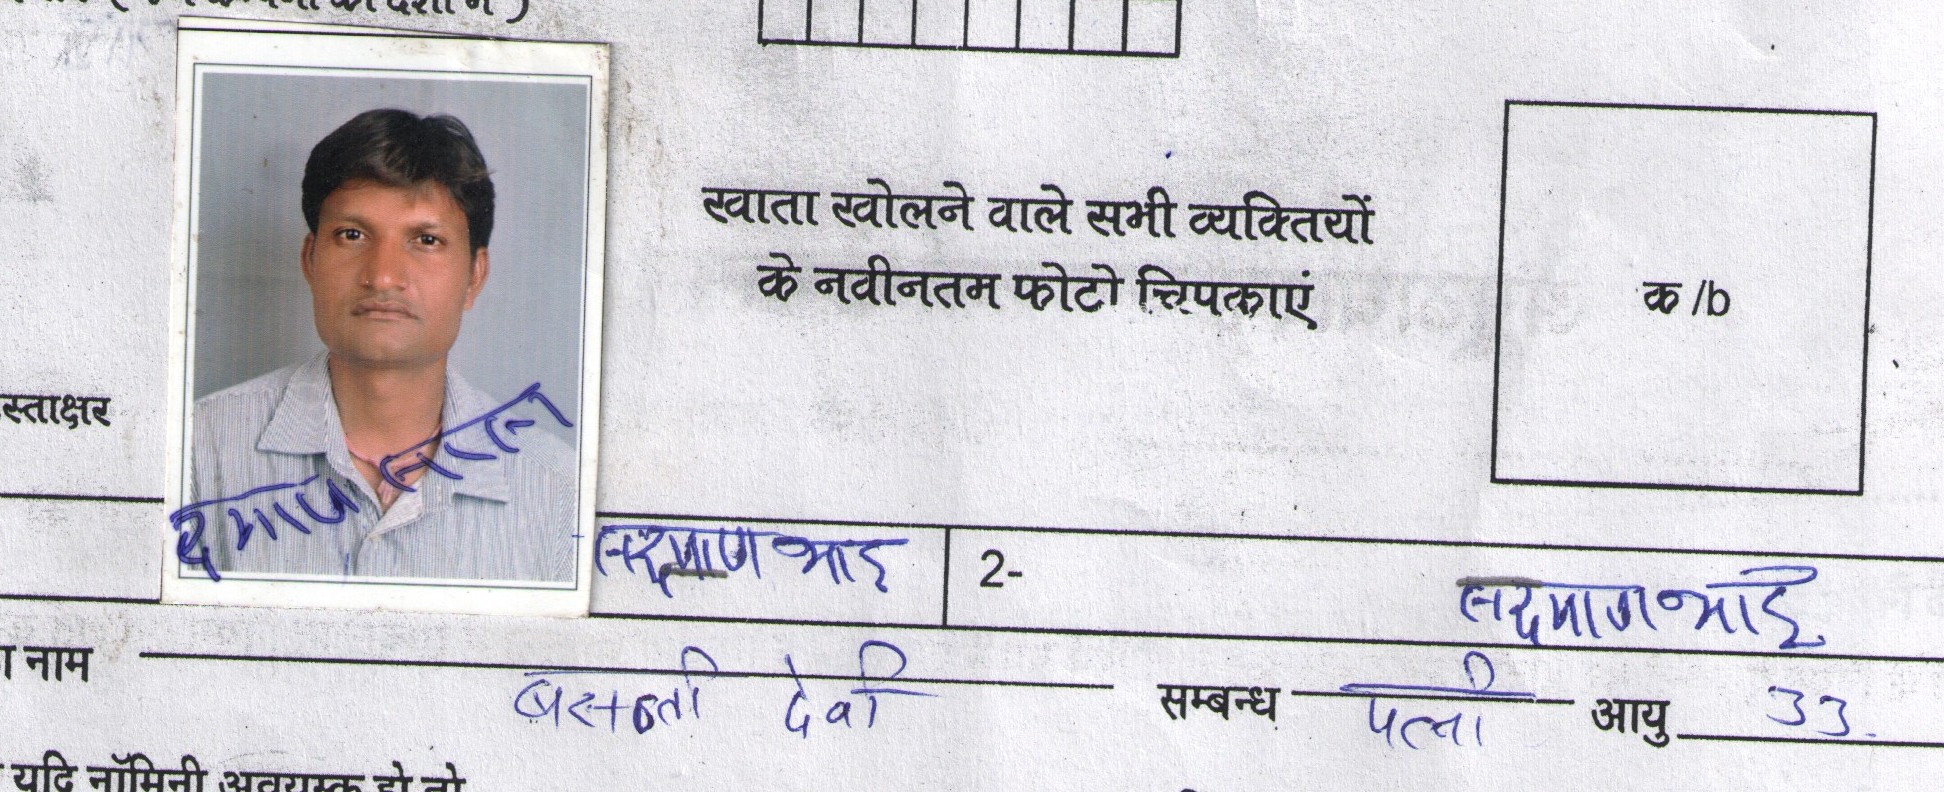 खाता खोलने वाले सभी व्यक्तियों
के नवीनतम फोटो चिपकाएं
क /b
स्ताक्षर
लक्ष्माण भाई 2- लक्ष्माण भाई
नाम बसन्ती देवी सम्बन्ध पत्नी आयु 33
यदि नॉमिनी अवयस्क हो तो